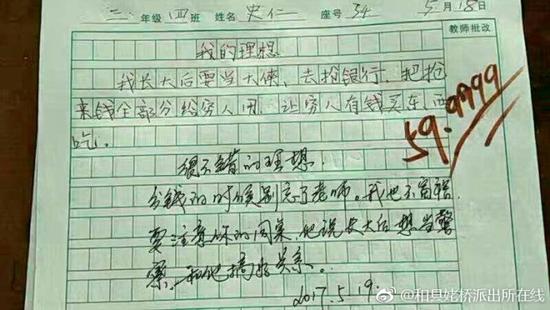 年级 四 班 姓名 史仁 座号 34 5月18日
教师批改
我的理想
我长大后要当大侠,去抢银行,把抢
来钱全部分给穷人用,让穷人有钱买东西
吃.
59.9999
很不错的理想.
分钱的时候别忘了老师。我也不富裕.
要注意你的同桌,他说长大后想当警
察,和他搞好关系。
2017.5.19.
@和县姥桥派出所在线